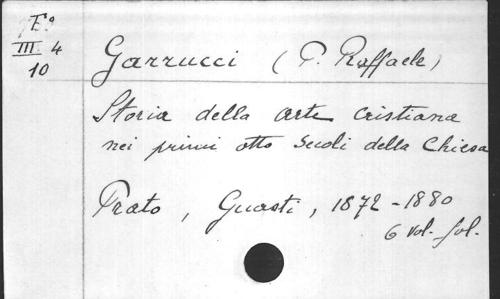 E.º
III. 4
10
Garrucci (P. Raffaele)
Storia della arte cristiana
nei primi otto secoli della Chiesa
Prato, Guasti, 1872-1880
6 vol. fol.